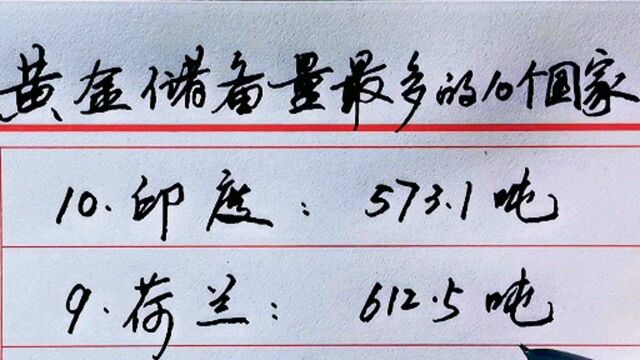 黄金储备量最多的10个国家
10.印度：573.1吨
9.荷兰：612.5吨